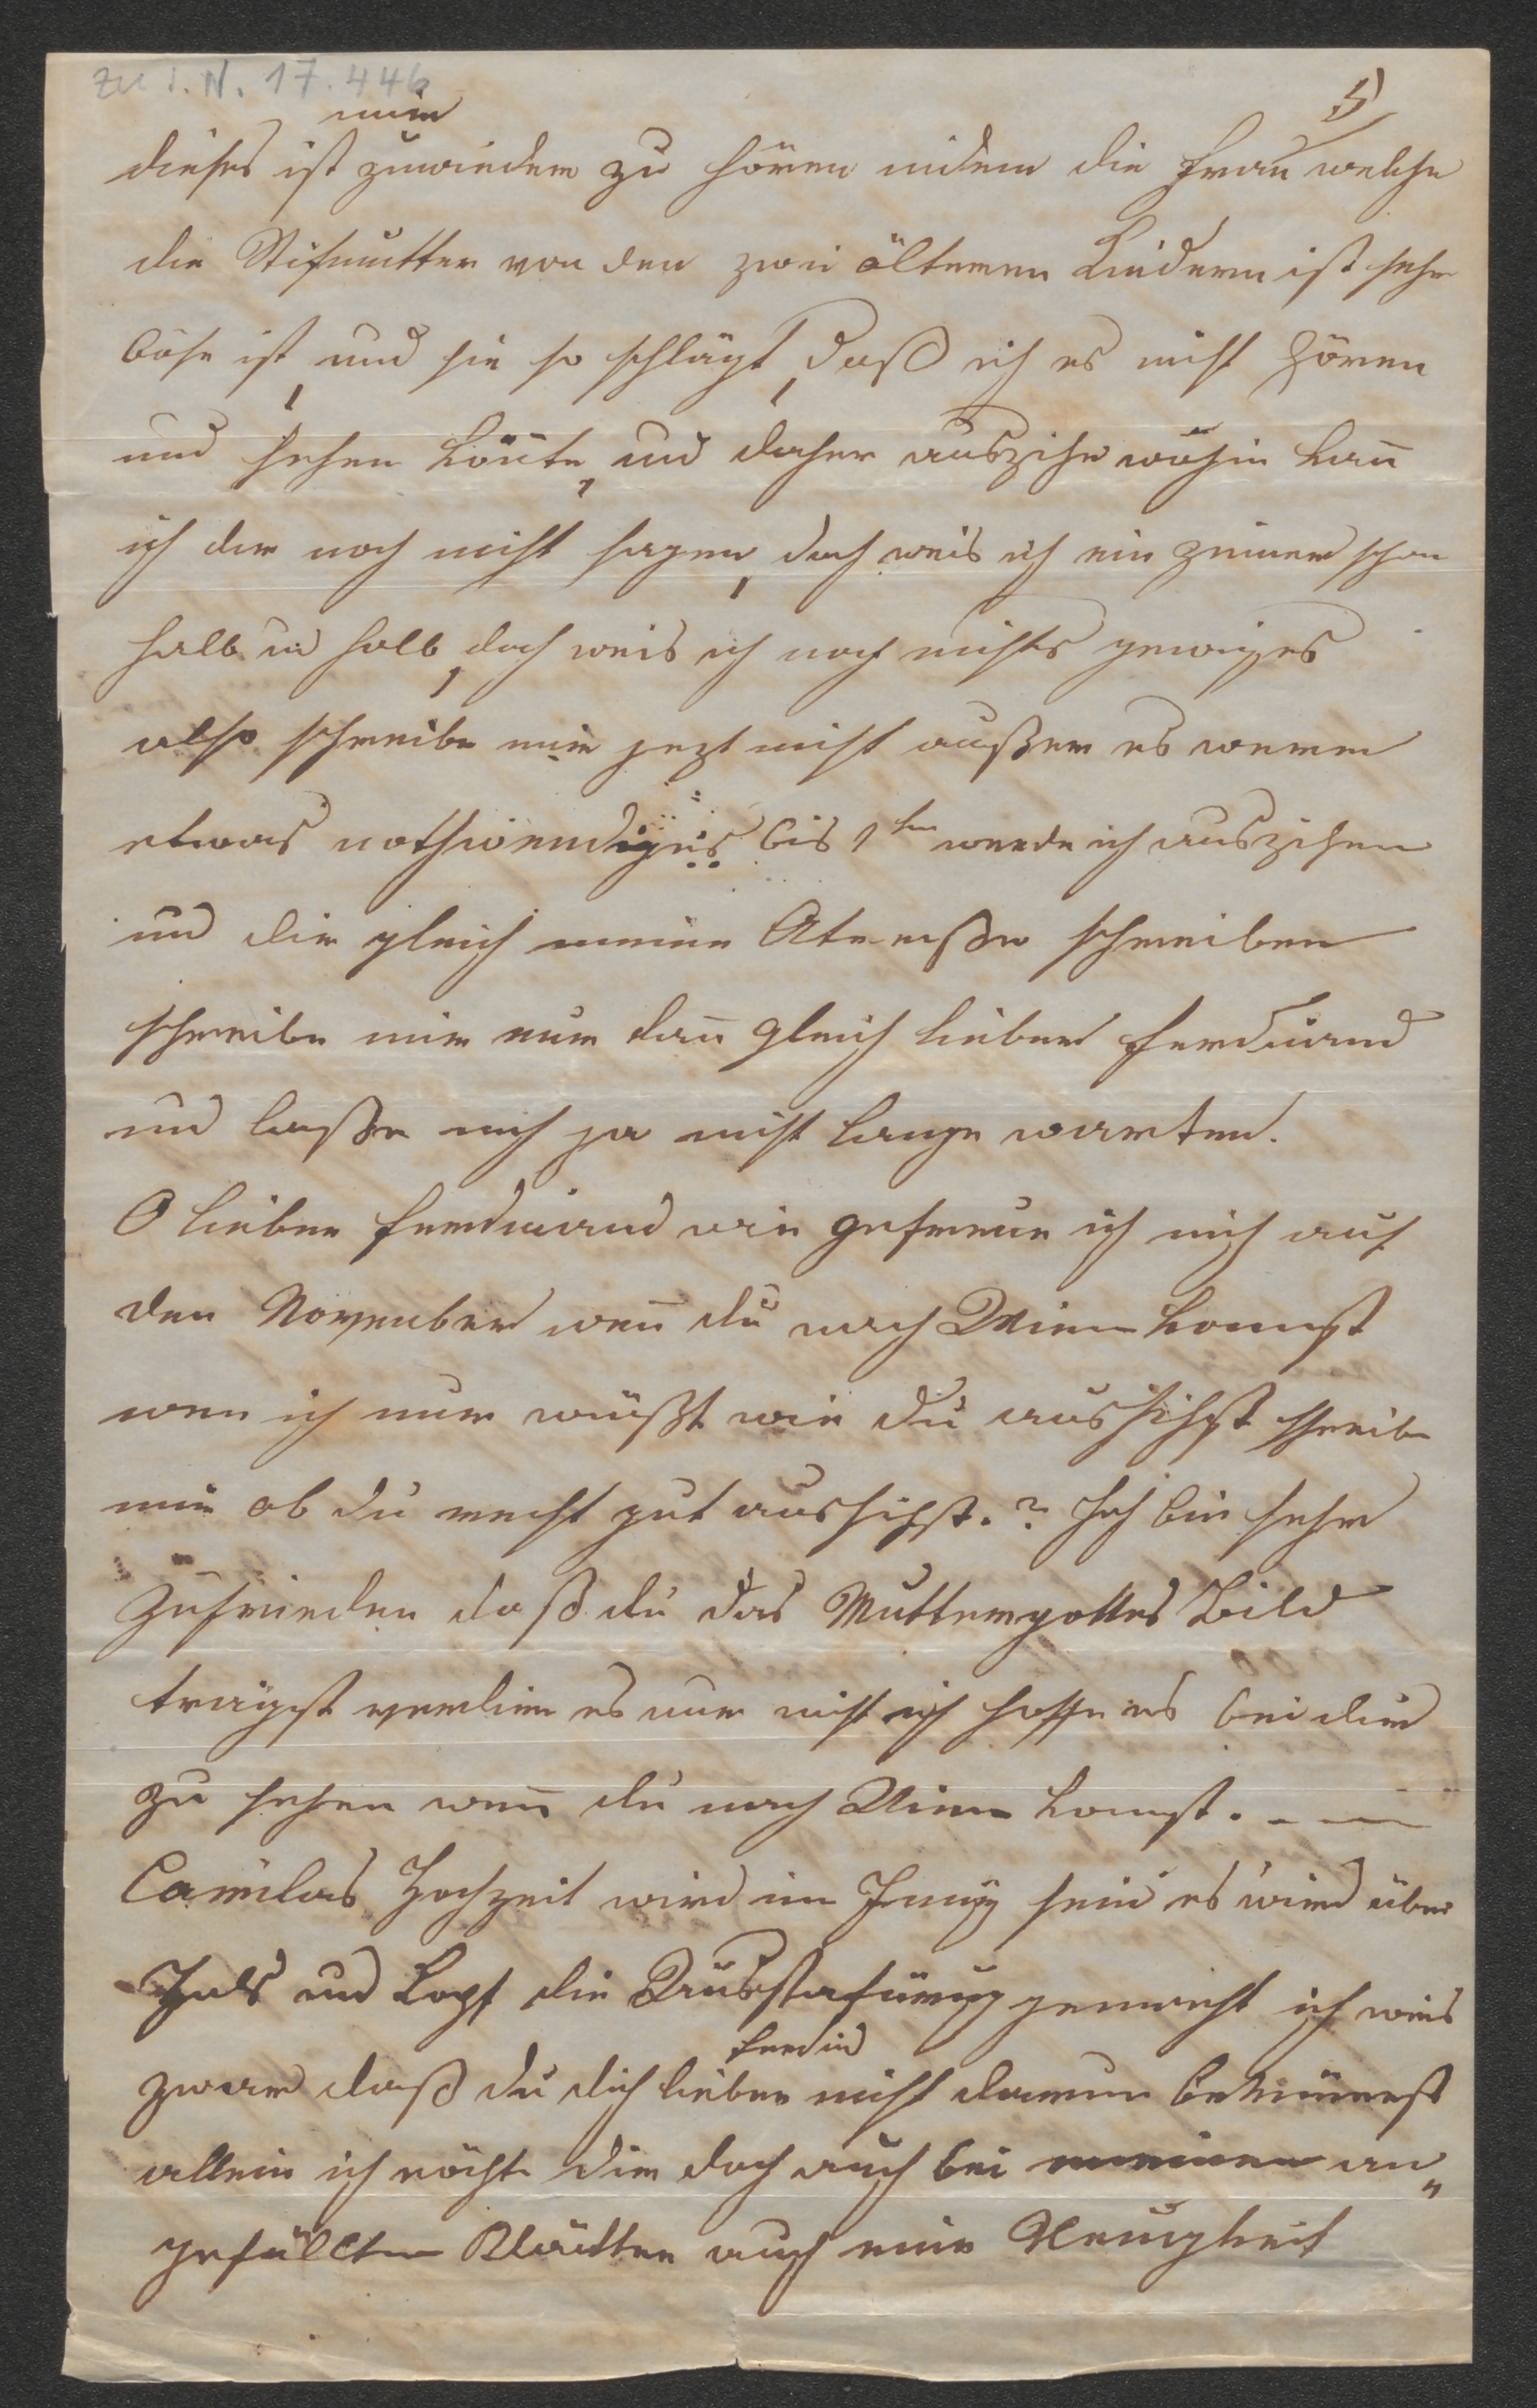 zu I.N. 17.446
5)
mir
dieses ist zuwieder zu hören indem die Frau welche
die Stifmutter von den zwei älteren Kindern ist sehr
böse ist, und sie so schlägt, daß ich es nicht hören
und sehen kön̄te, und daher ausziehe wohin kan̄
ich dir noch nicht sagen, doch weis ich ein Zimmer schon
halb und halb, doch weis ich noch nichts gewißes
also schreibe mir jezt nicht außer es were
etwas nothwendiges bis 1ten werde ich ausziehen
und dir gleich meine Atreße schreiben
schreibe mir nur dan̄ gleich lieber Ferdinand
und laße mich ja nicht lange warten.
O lieber Ferdinand wie gefreue ich mich auf
den November wen̄ du nach Wien komst
wen ich nur wüßt wie du aussihst schreibe
mir ob du recht gut aussihst.? Ich bin sehr
zufrieden daß du das Muttergottes Bild
trägst verlier es nur nicht ich hoffe es bei dir
zu sehen wen̄ du nach Wien komst. – —
Camilas Hochzeit wird im Juny sein es wird über
Hals und Kopf die Ausstafirung gemacht ich weis
Ferdin
zwar daß du dich lieber nicht darum bekümerst
allein ich möchte dir doch auch bei meinen an„
gefüllten Blätter auch eine Neuigkeit